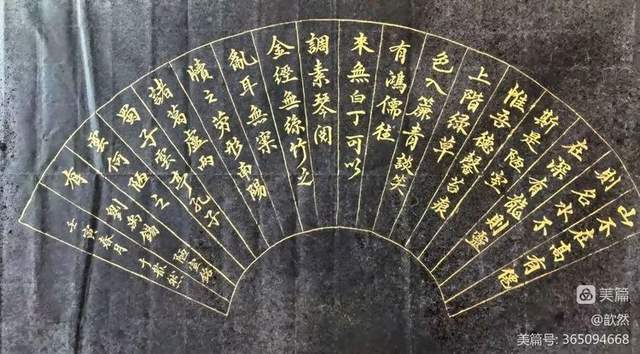 山不在高有僊
則名水不
在深有龍則靈
斯是陋室
惟吾德馨苔痕
上階綠草
色入簾青談笑
有鴻儒往
來無白丁可以
調素琴閱
金經無絲竹之
亂耳無案
牘之勞形南陽
諸葛廬西
蜀子雲亭孔子
雲何陋之
有 劉禹錫 陋室銘
壬寅春月于
美篇
@歆然
美篇号: 365094668